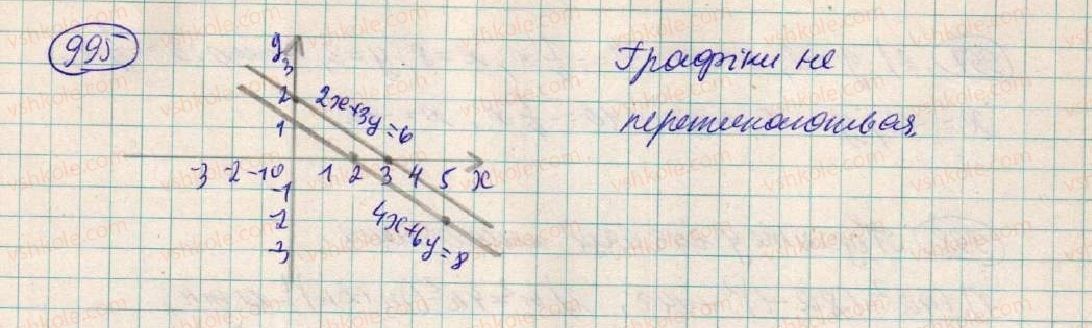 995
Графіки не
y
3
2
1
2x+3y=6
-3 -2 -1 0 1 2 3 4 5 x
-1
-2
-3
4x+6y=8
vshkole.com